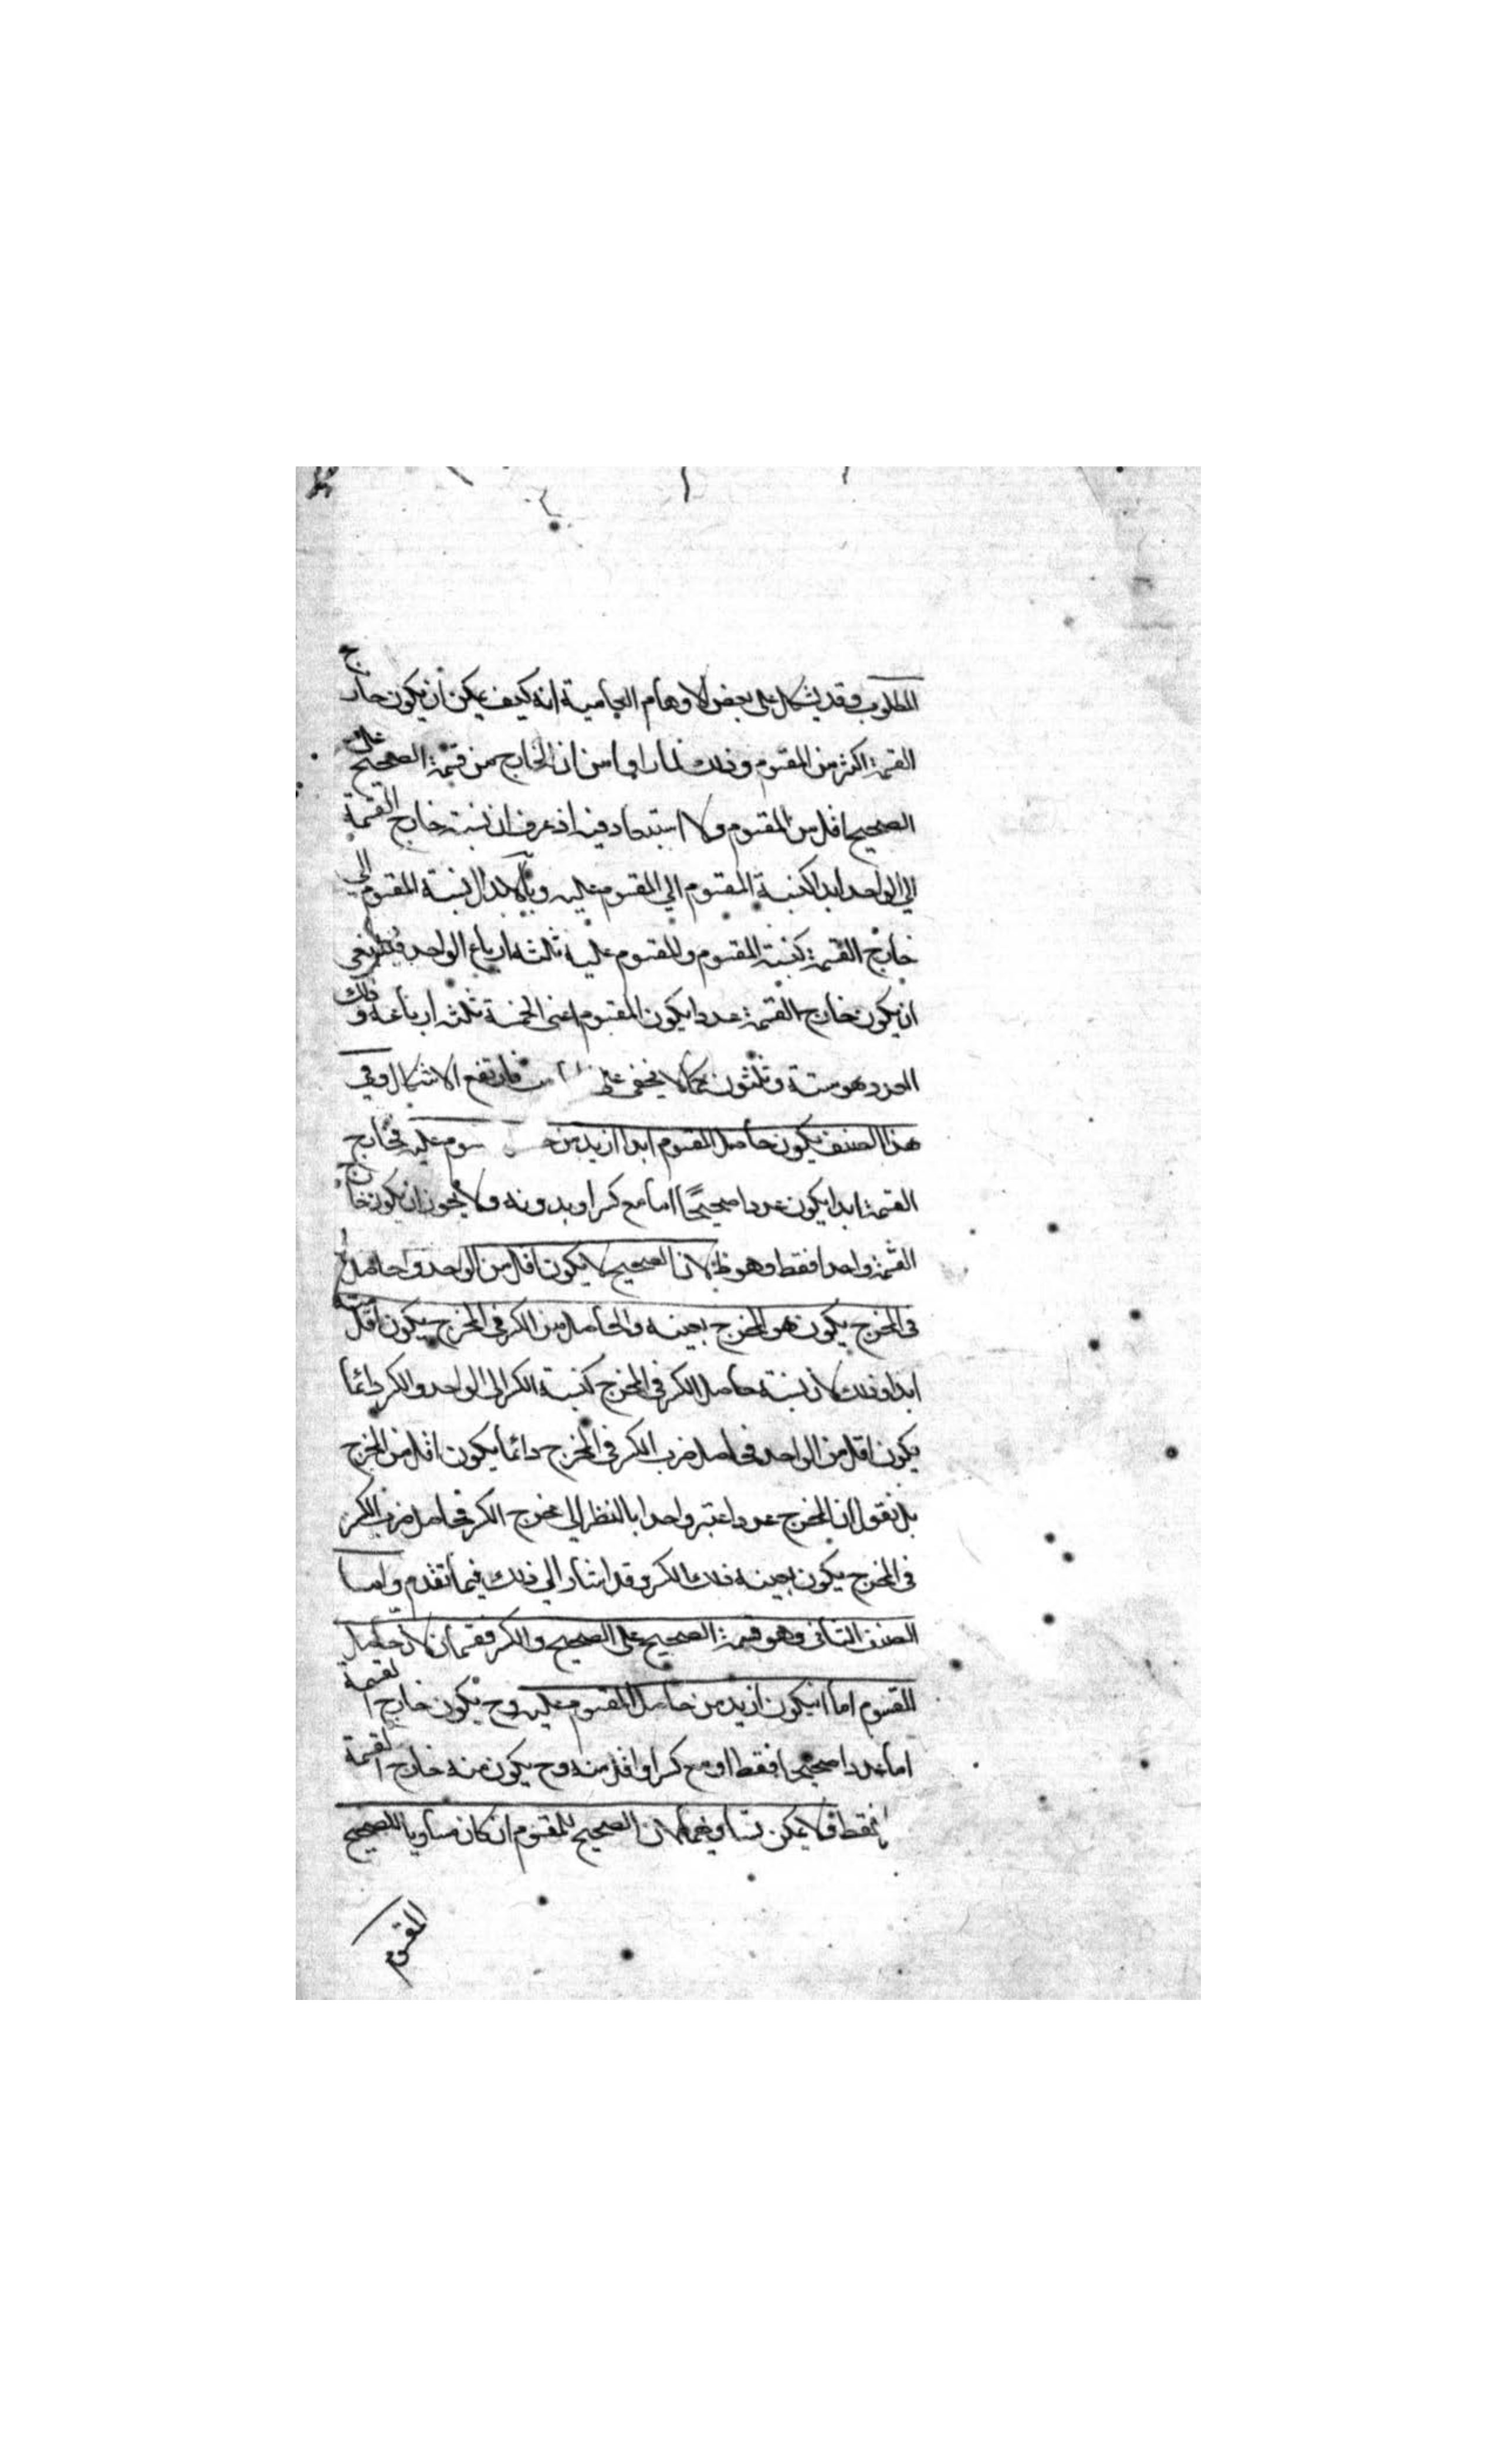 المطلوب وقد يشكل على بعض الاوهام العامية انه كيف يمكن ان يكون خارج
القسمة اكثر من المقسوم وذلك لما راوا من ان الخارج من قسمة الصحيح على
الصحيح اقل من المقسوم ولا استبعاد فيه اذ عرف ان نسبة خارج القسمة
الي الواحد ابدا كنسبة المقسوم الي المقسوم عليه وبالابدال نسبة المقسوم الي
خارج القسمة كنسبة المقسوم والمقسوم عليه ثلثة ارباع الواحد فينبغي
ان يكون خارج القسمة عددا يكون المقسوم اعني الخمسة ثلثة ارباعه وذلك
العدد هو ستة وثلثون كما لا يخفى على فارتفع الاشكال وفي
هذا الصنف يكون حاصل المقسوم ابدا ازيد من سوم عليه فخارج
القسمة ابدا يكون عددا صحيحًا اما مع كسر او بدونه ولا يجوز ان يكون خارج
القسمة واحدا فقط وهو ظ لان الصحيح لا يكون اقل من الواحد وحاصل
في المخرج يكون هو المخرج بعينه والحاصل من الكسر في المخرج يكون اقل منه
ابدا وذلك لان نسبة حاصل الكسر في المخرج كنسبة الكسر الى الواحد والكسر دائما
يكون اقل من الواحد فحاصل ضرب الكسر في المخرج دائما يكون اقل من المخرج
بل نقول ان المخرج عدد اعتبر واحدا بالنظر الي مخرج الكسر فحاصل ضرب الكسر
في المخرج يكون بعينه ذلك الكسر وقد اشار الي ذلك فيما تقدم واما
الصنف الثاني وهو قسمة الصحيح على الصحيح والكسر فقسمان لان حاصل
المقسوم اما ان يكون ازيد من حاصل المقسوم عليه وح يكون خارج القسمة
اما عددا صحيحا فقط او مع كسر او اقل منه وح يكون منه خارج القسمة
فقط ولا يمكن تساويهما لان الصحيح المقسوم ان كان مساويا للصحيح
المقسوم